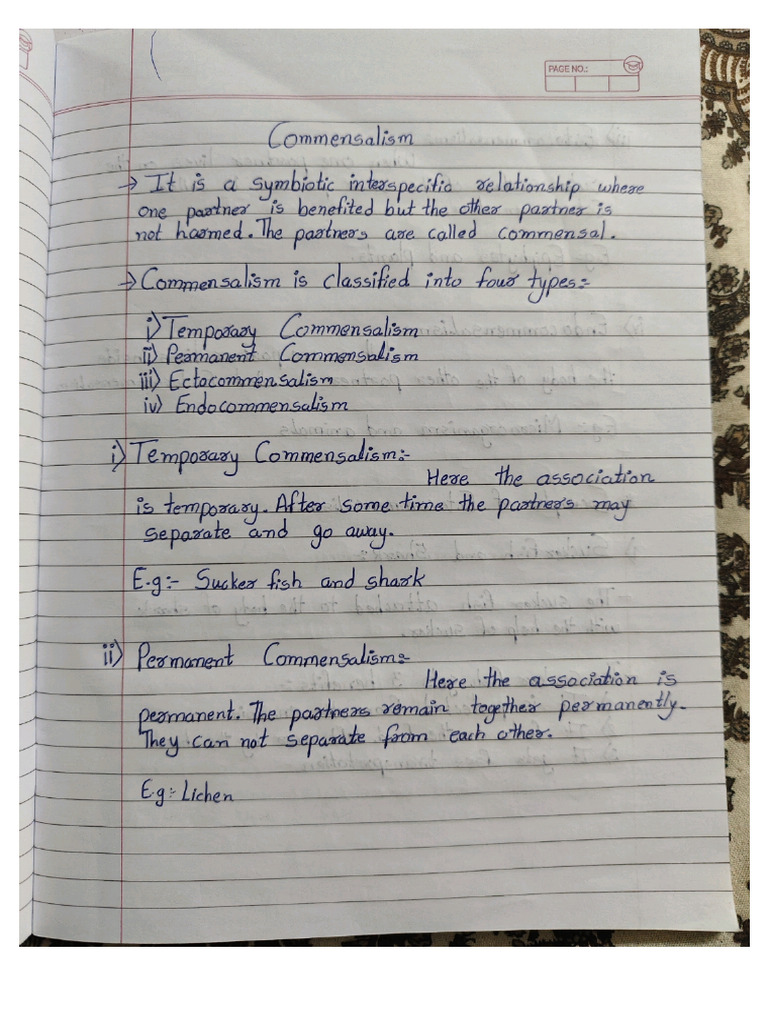 PAGE NO.:
Commensalism
→ It is a symbiotic interspecific relationship where
one partner is benefited but the other partner is
not harmed. The partners are called commensal.
→ Commensalism is classified into four types:-
i) Temporary Commensalism
ii) Permanent Commensalism
iii) Ectocommensalism
iv) Endocommensalism
i) Temporary Commensalism:-
Here the association
is temporary. After some time the partners may
separate and go away.
E.g:- Sucker fish and shark
ii) Permanent Commensalism:-
Here the association is
permanent. The partners remain together permanently.
They can not separate from each other.
E.g:- Lichen